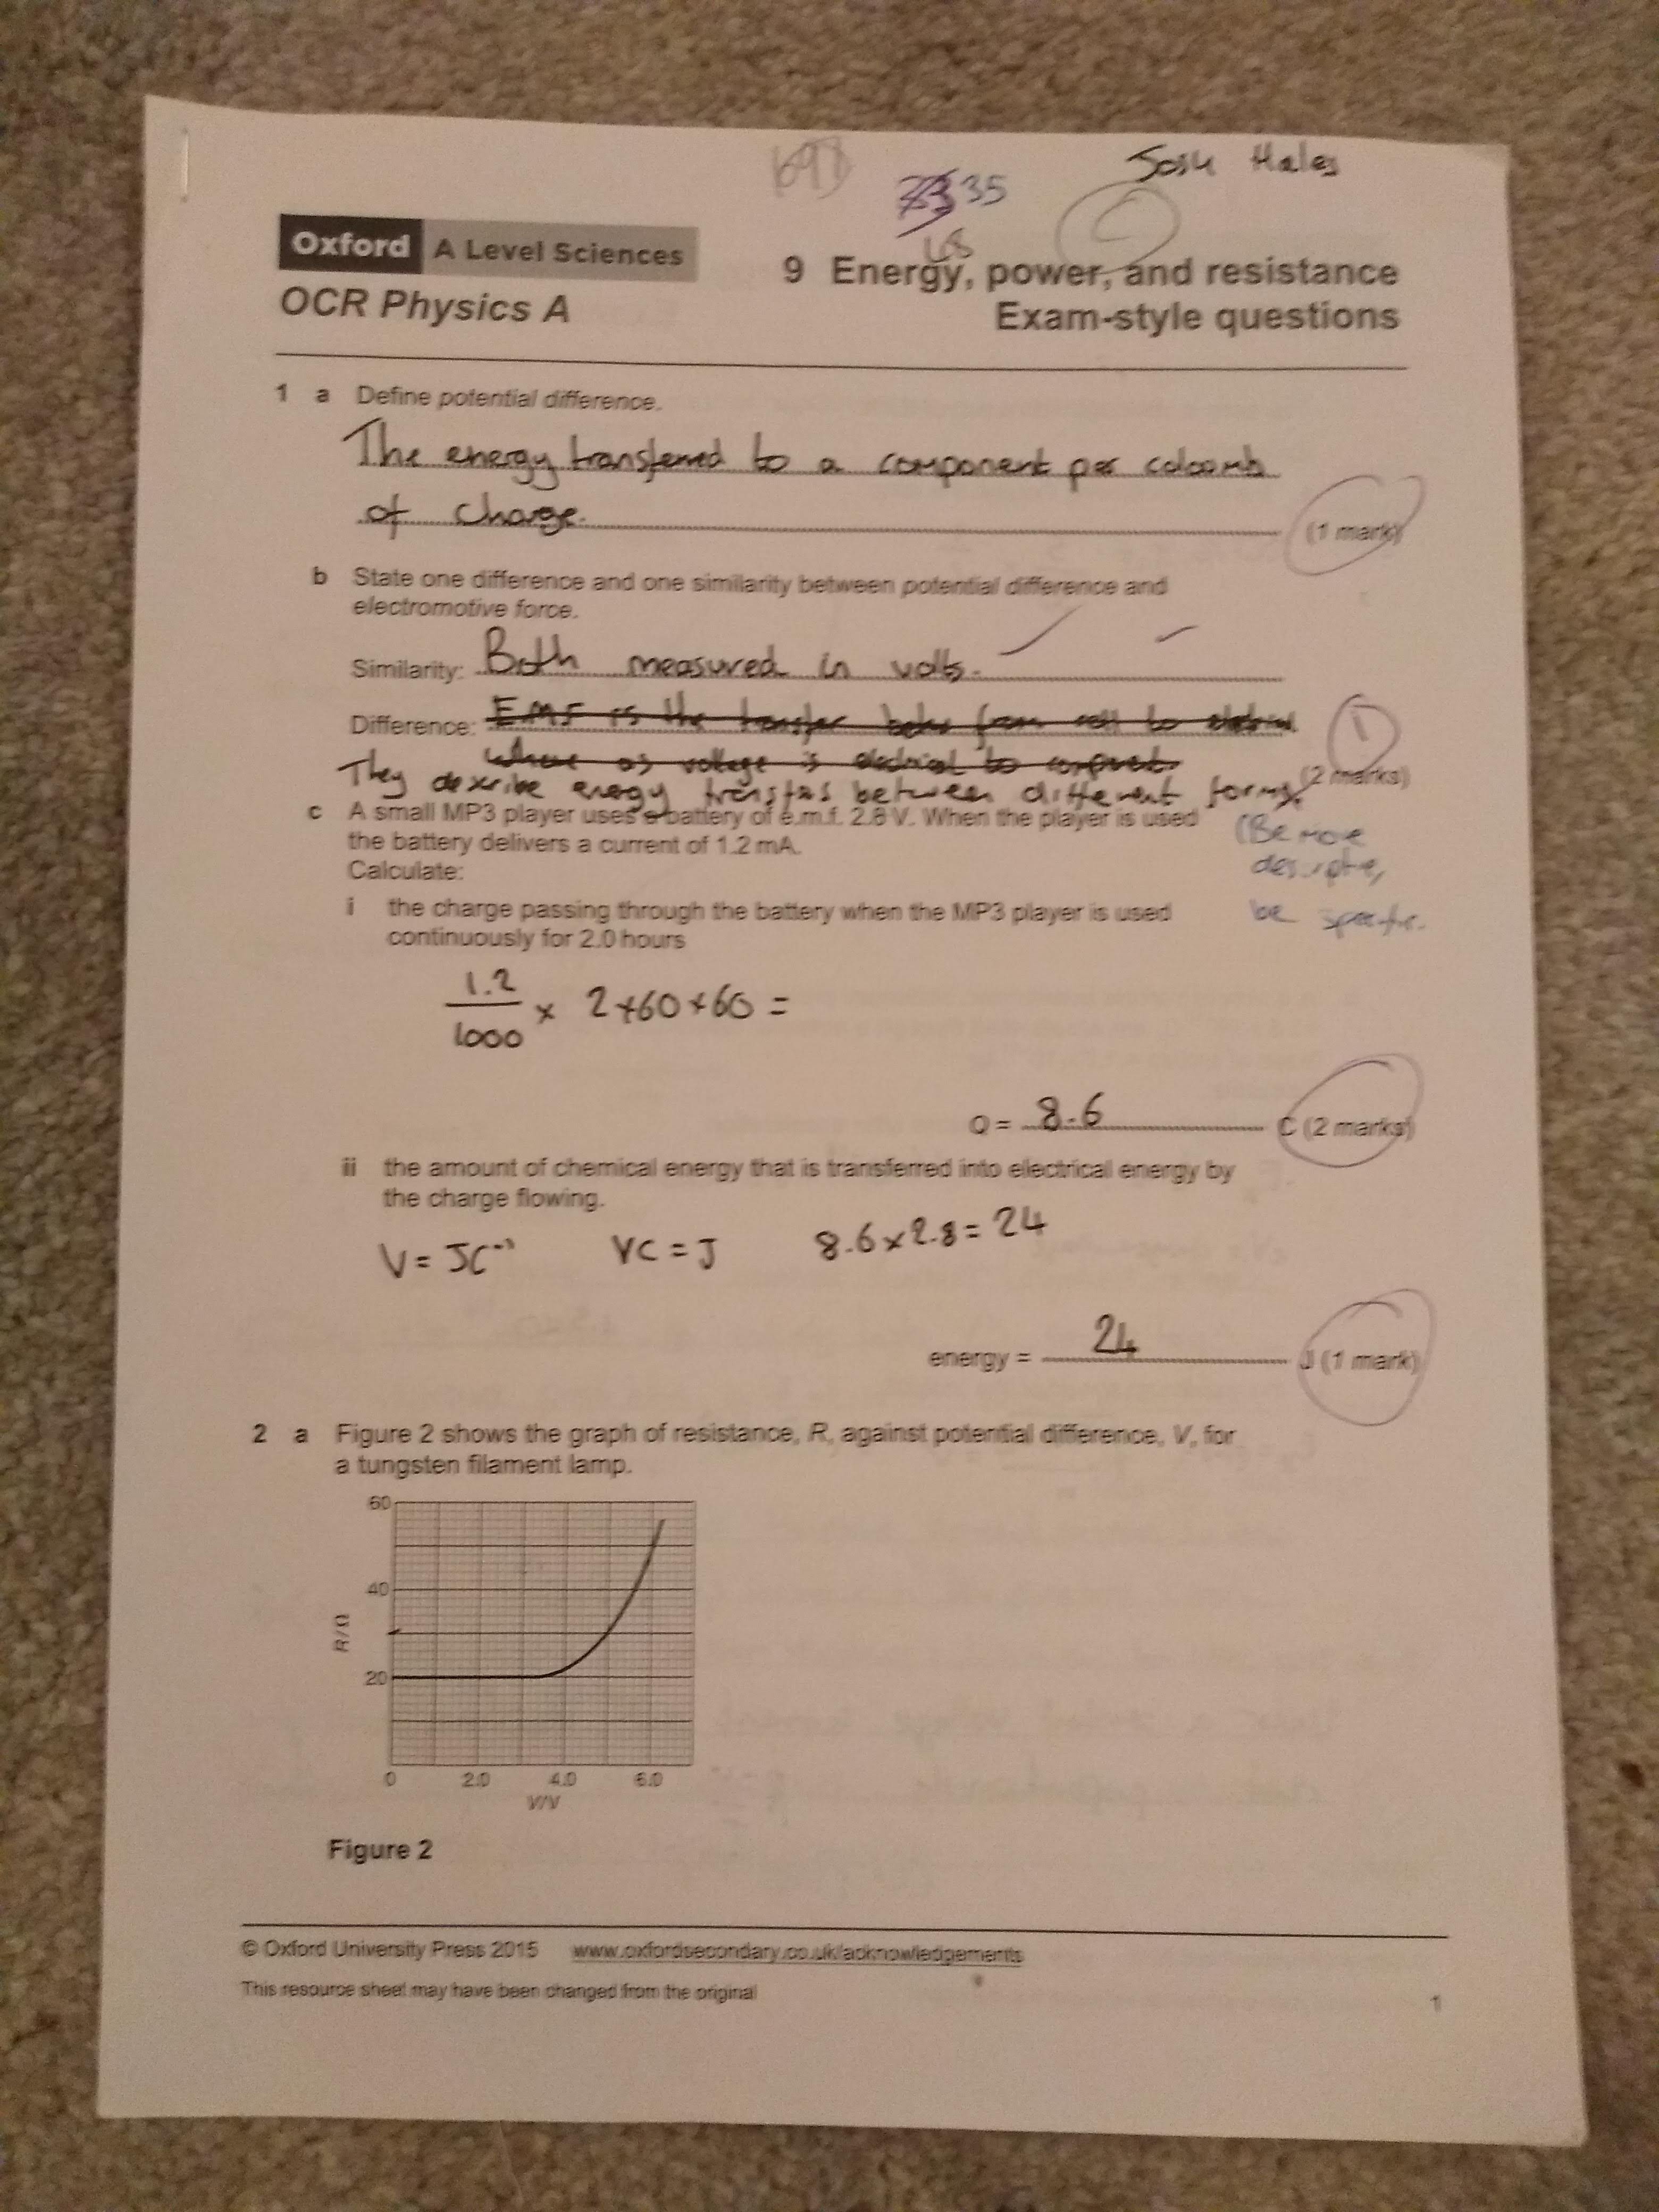 Josh Hales
35
48
Oxford A Level Sciences
OCR Physics A
9 Energy, power, and resistance
Exam-style questions
1 a Define potential difference.
The energy transferred to a component per coloomb
of charge.
(1 mark)
b State one difference and one similarity between potential difference and
electromotive force.
Similarity: Both measured in volts.
Difference: EMF is the transfer from cell to
where as voltage is electrical to component.
They describe energy transfers between different forms.
1
(2 marks)
c A small MP3 player uses a battery of e.m.f. 2.8 V. When the player is used
the battery delivers a current of 1.2 mA.
Calculate:
(Be more
descriptive,
be specific.
i the charge passing through the battery when the MP3 player is used
continuously for 2.0 hours
1.2
1000 × 2×60×60 =
Q = 8.6 C (2 marks)
ii the amount of chemical energy that is transferred into electrical energy by
the charge flowing.
V = JC⁻¹ VC = J 8.6×2.8 = 24
energy = 24 J (1 mark)
2 a Figure 2 shows the graph of resistance, R, against potential difference, V, for
a tungsten filament lamp.
60
40
R/Ω
20
0 2.0 4.0 6.0
V/V
Figure 2
© Oxford University Press 2015 www.oxfordsecondary.co.uk/acknowledgements
This resource sheet may have been changed from the original
1